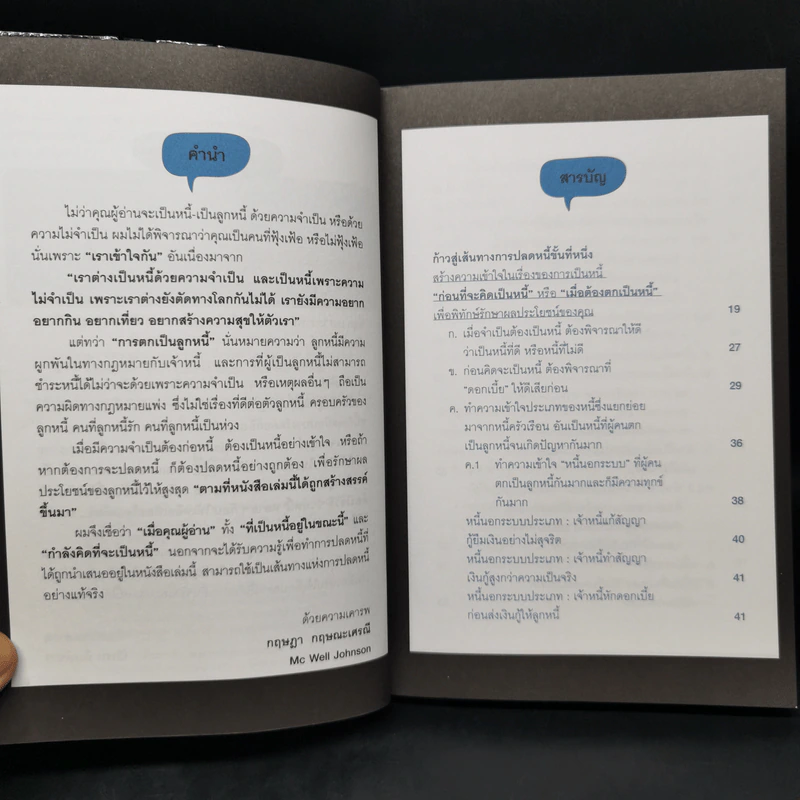 คำนำ
ไม่ว่าคุณผู้อ่านจะเป็นหนี้-เป็นลูกหนี้ ด้วยความจำเป็น หรือด้วย
ความไม่จำเป็น ผมไม่ได้พิจารณาว่าคุณเป็นคนที่ฟุ้งเฟ้อ หรือไม่ฟุ้งเฟ้อ
นั่นเพราะ “เราเข้าใจกัน” อันเนื่องมาจาก
“เราต่างเป็นหนี้ด้วยความจำเป็น และเป็นหนี้เพราะความ
ไม่จำเป็น เพราะเราต่างยังตัดทางโลกกันไม่ได้ เรายังมีความอยาก
อยากกิน อยากเที่ยว อยากสร้างความสุขให้ตัวเรา”
แต่ทว่า “การตกเป็นลูกหนี้” นั่นหมายความว่า ลูกหนี้มีความ
ผูกพันในทางกฎหมายกับเจ้าหนี้ และการที่ผู้เป็นลูกหนี้ไม่สามารถ
ชำระหนี้ได้ไม่ว่าจะด้วยเพราะความจำเป็น หรือเหตุผลอื่นๆ ถือเป็น
ความผิดทางกฎหมายแพ่ง ซึ่งไม่ใช่เรื่องที่ดีต่อตัวลูกหนี้ ครอบครัวของ
ลูกหนี้ คนที่ลูกหนี้รัก คนที่ลูกหนี้เป็นห่วง
เมื่อมีความจำเป็นต้องก่อหนี้ ต้องเป็นหนี้อย่างเข้าใจ หรือถ้า
หากต้องการจะปลดหนี้ ก็ต้องปลดหนี้อย่างถูกต้อง เพื่อรักษาผล
ประโยชน์ของลูกหนี้ไว้ให้สูงสุด “ตามที่หนังสือเล่มนี้ได้ถูกสร้างสรรค์
ขึ้นมา”
ผมจึงเชื่อว่า “เมื่อคุณผู้อ่าน” ทั้ง “ที่เป็นหนี้อยู่ในขณะนี้” และ
“กำลังคิดที่จะเป็นหนี้” นอกจากจะได้รับความรู้เพื่อทำการปลดหนี้ที่
ได้ถูกนำเสนออยู่ในหนังสือเล่มนี้ สามารถใช้เป็นเส้นทางแห่งการปลดหนี้
อย่างแท้จริง
ด้วยความเคารพ
กฤษฎา กฤษณะเศรณี
Mc Well Johnson
สารบัญ
ก้าวสู่เส้นทางการปลดหนี้ขั้นที่หนึ่ง
สร้างความเข้าใจในเรื่องของการเป็นหนี้
“ก่อนที่จะคิดเป็นหนี้” หรือ “เมื่อต้องตกเป็นหนี้”
เพื่อพิทักษ์รักษาผลประโยชน์ของคุณ 19
ก. เมื่อจำเป็นต้องเป็นหนี้ ต้องพิจารณาให้ดี
ว่าเป็นหนี้ที่ดี หรือหนี้ที่ไม่ดี 27
ข. ก่อนคิดจะเป็นหนี้ ต้องพิจารณาที่
“ดอกเบี้ย” ให้ดีเสียก่อน 29
ค. ทำความเข้าใจประเภทของหนี้ซึ่งแยกย่อย
มาจากหนี้ครัวเรือน อันเป็นหนี้ที่ผู้คนตก
เป็นลูกหนี้จนเกิดปัญหากันมาก 36
ค.1 ทำความเข้าใจ “หนี้นอกระบบ” ที่ผู้คน
ตกเป็นลูกหนี้กันมากและก็มีความทุกข์
กันมาก 38
หนี้นอกระบบประเภท : เจ้าหนี้แก้สัญญา
กู้ยืมเงินอย่างไม่สุจริต 40
หนี้นอกระบบประเภท : เจ้าหนี้ทำสัญญา
เงินกู้สูงกว่าความเป็นจริง 41
หนี้นอกระบบประเภท : เจ้าหนี้หักดอกเบี้ย
ก่อนส่งเงินกู้ให้ลูกหนี้ 41